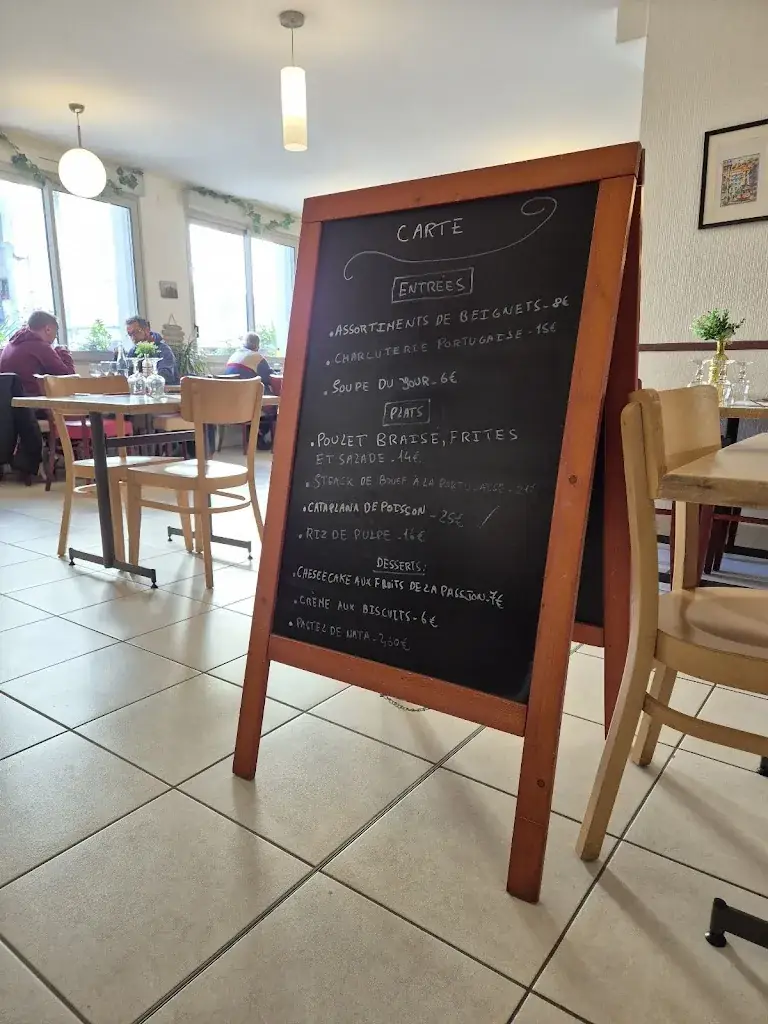 CARTE
ENTREES
. ASSORTIMENTS DE BEIGNETS - 8€
. CHARCUTERIE PORTUGAISE - 15€
. SOUPE DU JOUR - 6€
PLATS
. POULET BRAISE, FRITES
ET SALADE - 14€
. STEACK DE BOEUF A LA PORTUGAISE
. CATAPLANA DE POISSON - 25€
. RIZ DE PULPE - 16€
DESSERTS:
. CHESEECAKE AUX FRUITS DE LA PASSION - 7€
. CRÈME AUX BISCUITS - 6€
. PASTEL DE NATA - 2,50€